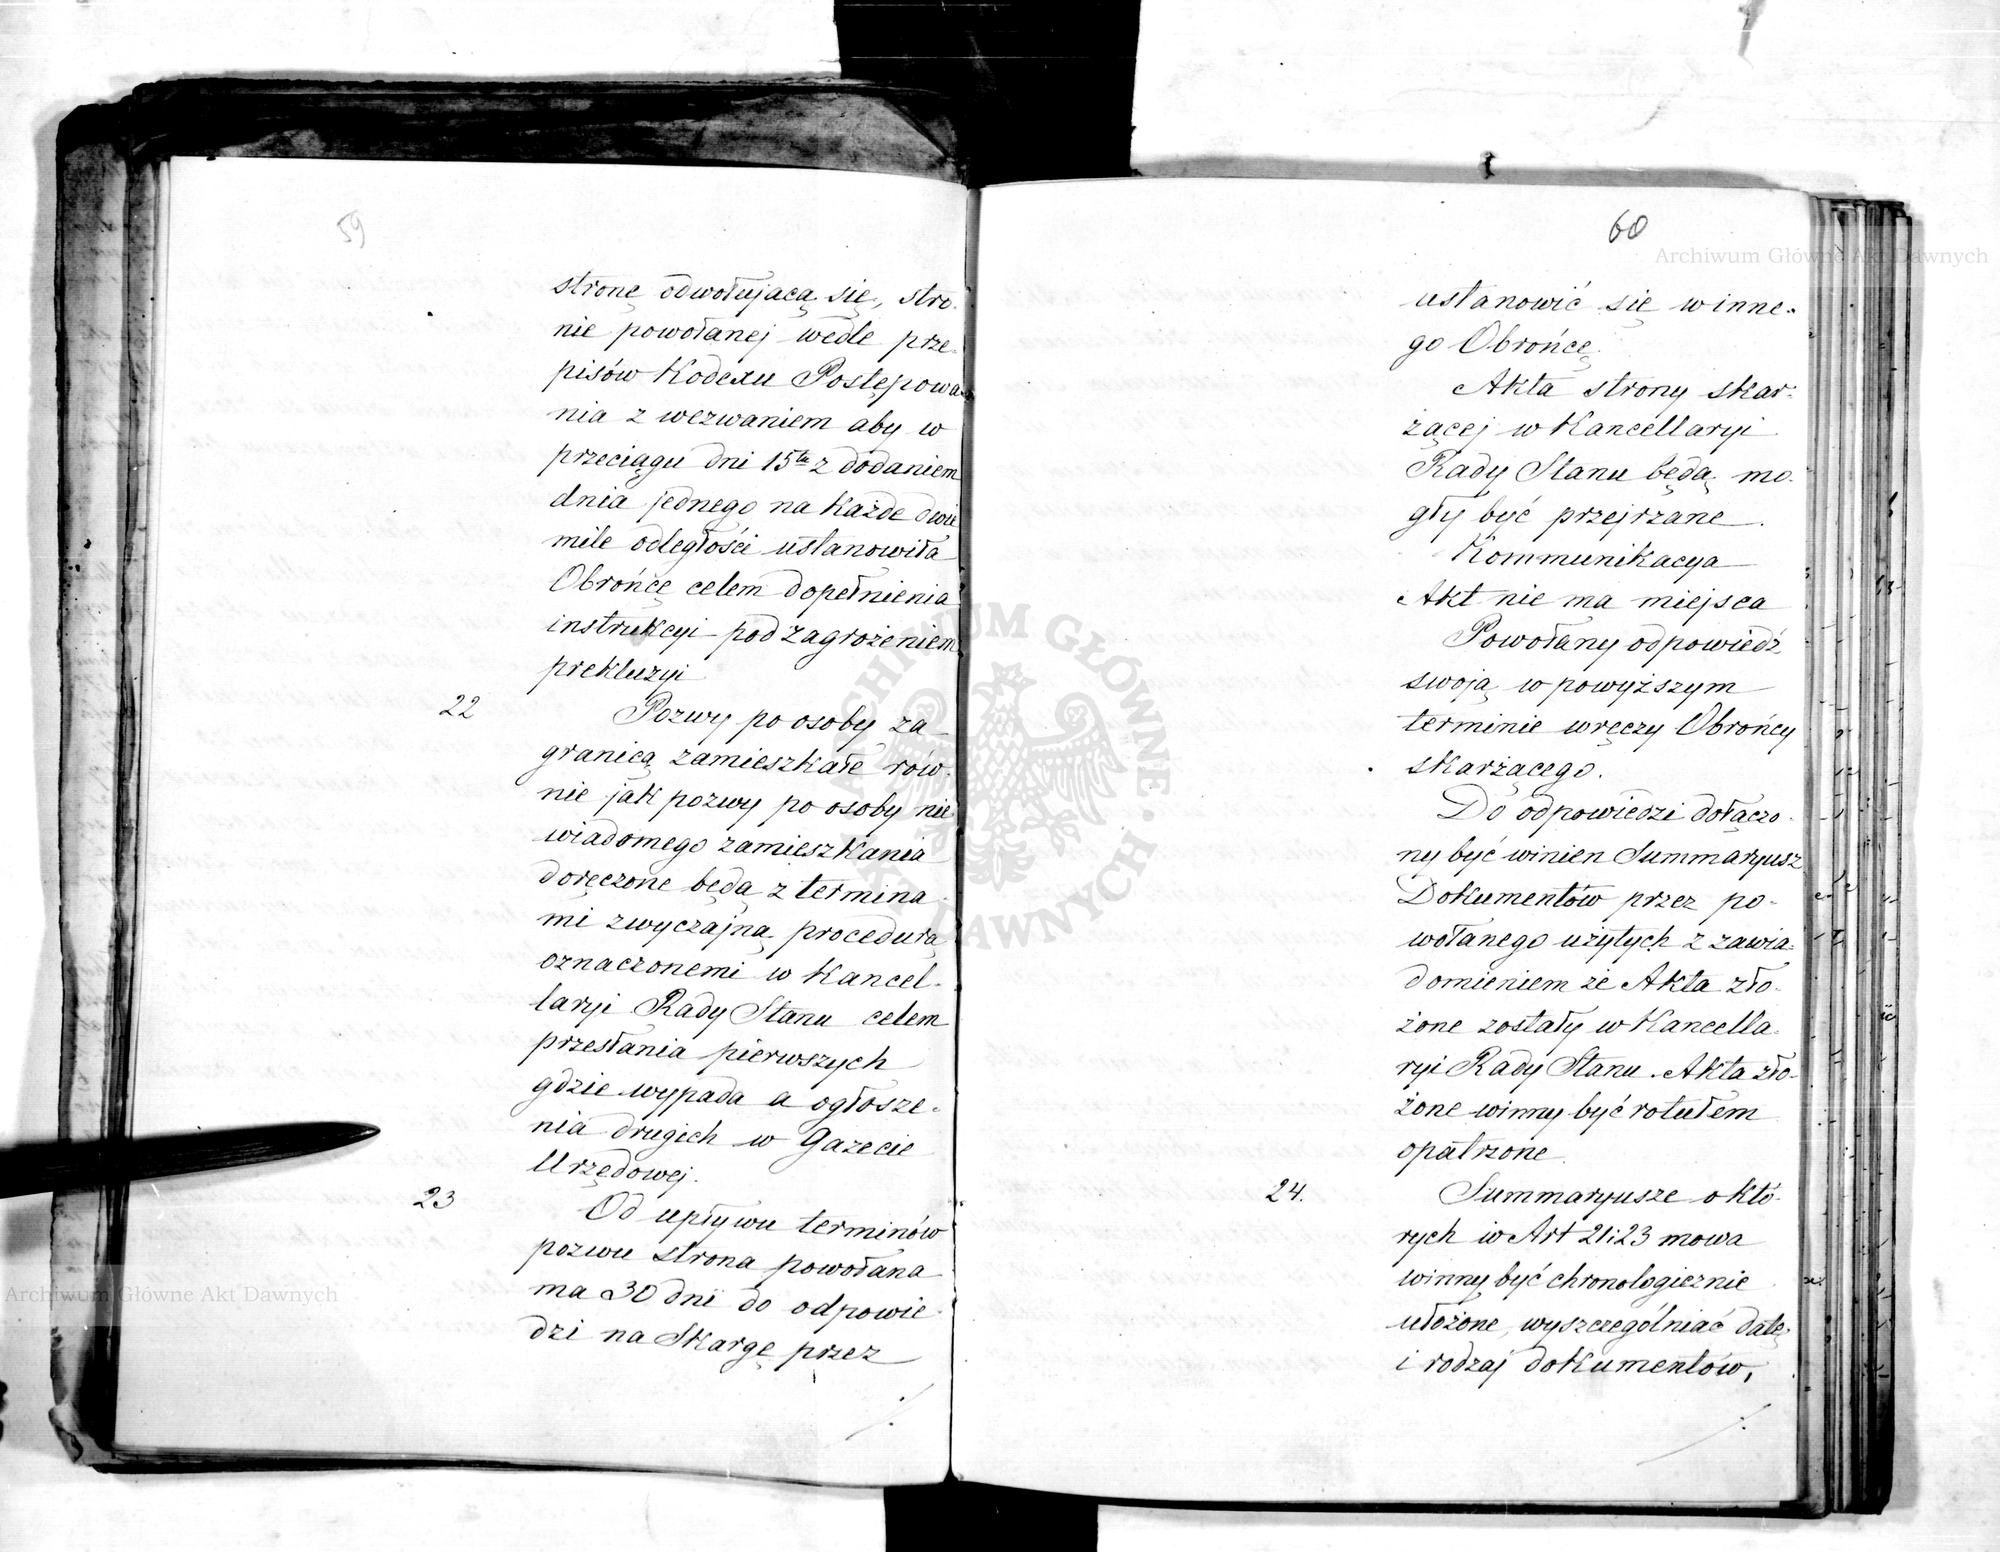 59
stronę odwołującą się, stro-
nie powołanej wedle prze-
pisów Kodexu Postępowa-
nia z wezwaniem aby w
przeciągu dni 15tu z dodaniem
dnia jednego na każde dwie
mile odległości ustanowiła
Obrońcę celem dopełnienia
instrukcyi pod zagrożeniem
prekluzyi
22 Pozwy po osoby za
granicą zamieszkałe rów-
nie jak pozwy po osoby nie
wiadomego zamieszkania
doręczone będą z termina-
mi zwyczajną procedurą
oznaczonemi w Kancel-
laryi Rady Stanu celem
przesłania pierwszych
gdzie wypada a ogłosze-
nia drugich w Gazecie
Urzędowej.
23 Od upływu terminów
pozwu strona powołana
ma 30 dni do odpowie-
dzi na Skargę przez
60
ustanowić się winne-
go Obrońcę.
Akta strony skar-
żącej w Kancellaryi
Rady Stanu będą mo-
gły być przejrzane.
Kommunikacya
Akt nie ma miejsca
Powołany odpowiedź
swoją w powyższym
terminie wręczy Obrońcy
skarżącego.
Do odpowiedzi dołączo-
ny być winien Summaryusz
Dokumentów przez po-
wołanego użytych z zawia-
domieniem że Akta zło-
żone zostały w Kancella-
ryi Rady Stanu. Akta zło-
żone winny być rotułem
opatrzone
24. Summaryusze o któ-
rych w Art 21:23 mowa
winny być chronologicznie
ułożone, wyszczególniać datę
i rodzaj dokumentów,
Archiwum Główne Akt Dawnych
Archiwum Główne Akt Dawnych
ARCHIWUM GŁÓWNE AKT DAWNYCH